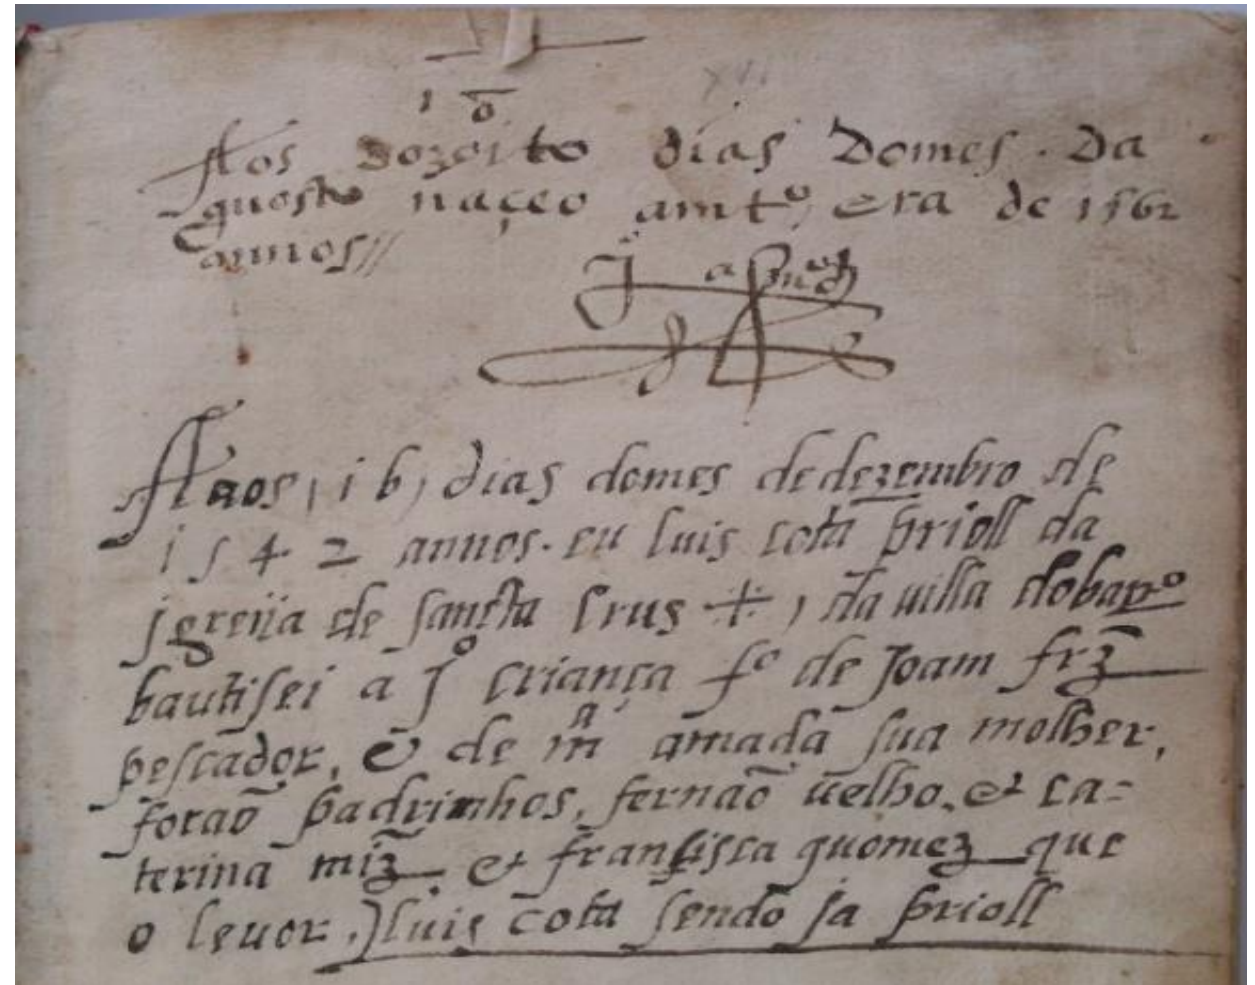 Aos dozoito dias domes . da
guosto naçeo amtº, era de 1562
annos //
Aaos, i6, dias domes de dezembro de
i542 annos. eu luis cota prioll da
jgreija de sancta Crus +, da villa dobarrº
bautisei a Jº criança fº de Joam frz
pescador, & de mª amada sua molher,
forão padrinhos, fernão velho, & ca=
terina miz & fransisca guomez que
o levor.) luis cota sendo ja prioll